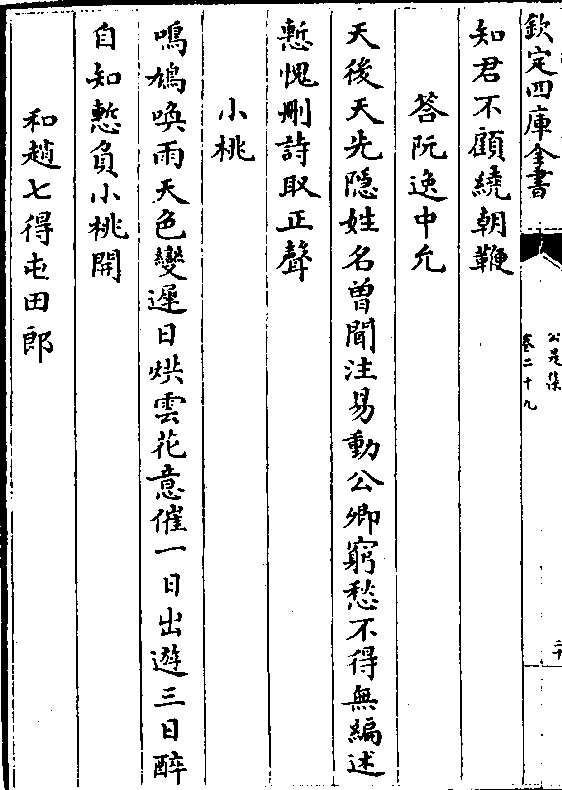 欽定四庫全書
公是集
卷二十九
二十
知君不顧繞朝鞭
答阮逸中允
天後天先隱姓名曾聞注易動公卿窮愁不得無編述
慙愧刪詩取正聲
小桃
鳴鳩喚雨天色變遲日烘雲花意催一日出遊三日醉
自知慙負小桃開
和趙七得屯田郎